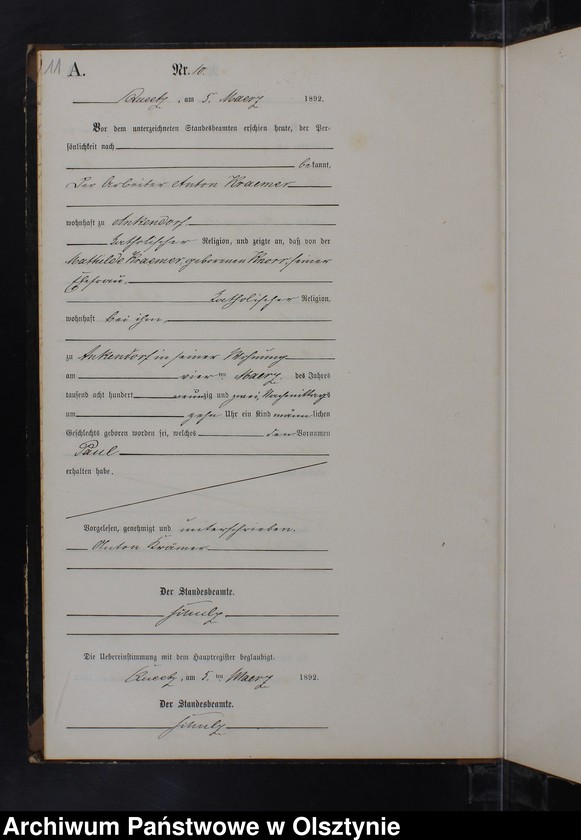 11
A. Nr. 10.
Queetz, am 5. Maerz 1892.
Vor dem unterzeichneten Standesbeamten erschien heute, der Per-
sönlichkeit nach
bekannt,
Der Arbeiter Anton Kraemer
wohnhaft zu Ankendorf
katholischer Religion, und zeigte an, daß von der
Mathilde Kraemer, geborenen Knorr, seiner
Ehefrau,
katholischer Religion,
wohnhaft bei ihm,
zu Ankendorf in seiner Wohnung
am vier ten Maerz des Jahres
tausend acht hundert neunzig und zwei, Nachmittags
um zehn Uhr ein Kind männlichen
Geschlechts geboren worden sei, welches den Vornamen
Paul
erhalten habe.
Vorgelesen, genehmigt und unterschrieben.
Anton Krämer
Der Standesbeamte.
Schulz
Die Uebereinstimmung mit dem Hauptregister beglaubigt.
Queetz, am 5. ten Maerz 1892.
Der Standesbeamte.
Schulz
Archiwum Państwowe w Olsztynie